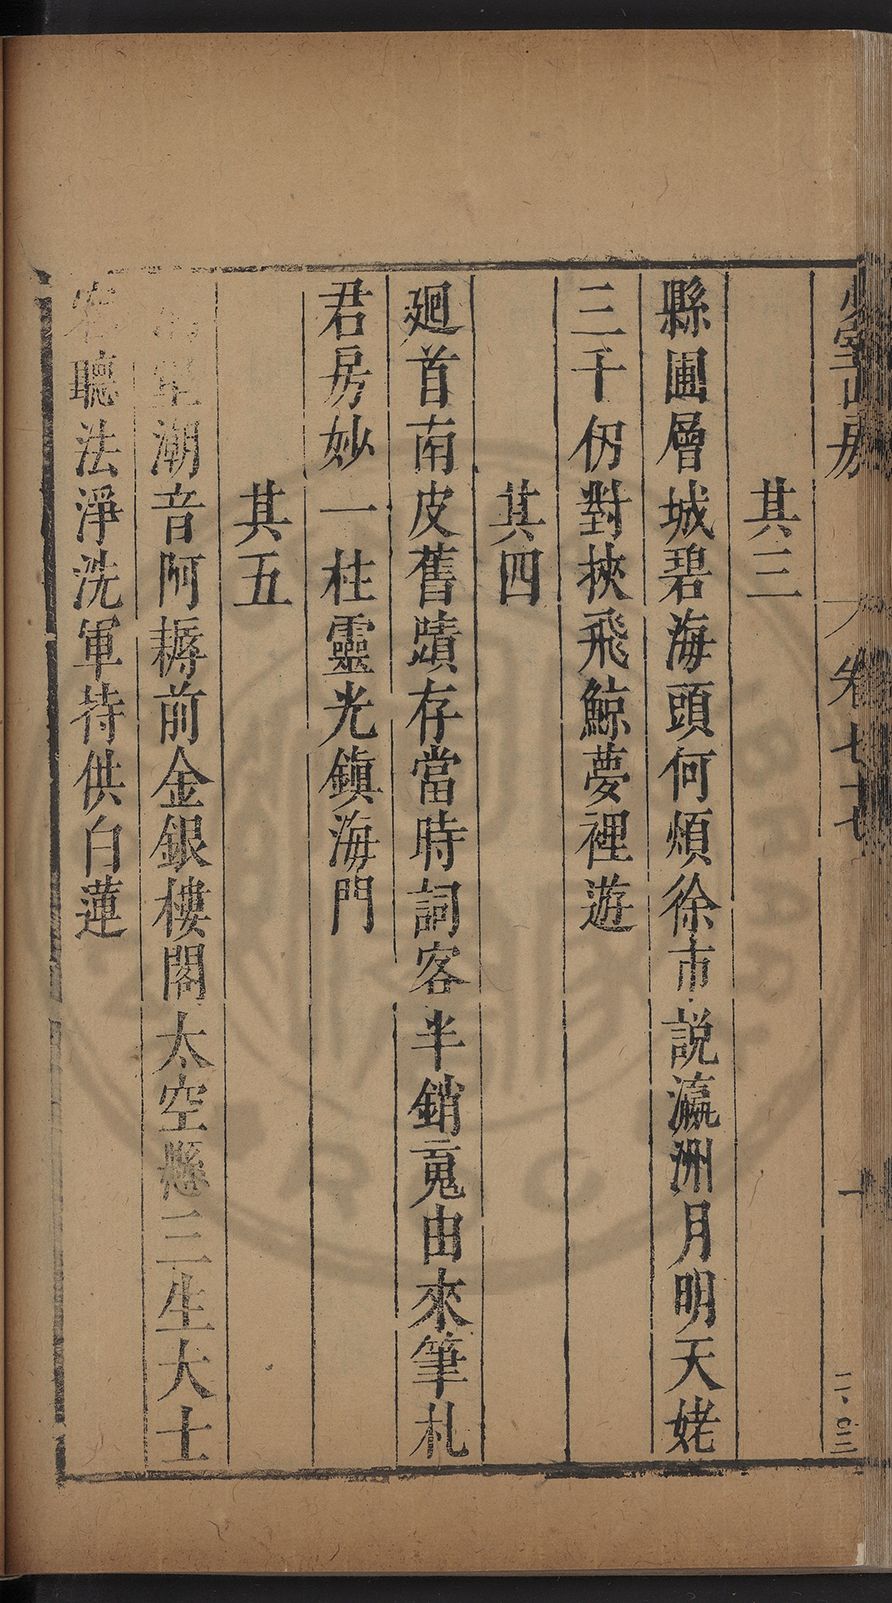 少室山房 卷七十七 一
其三
縣圃層城碧海頭何煩徐市説瀛洲月明天姥
三千仞對挾飛鯨夢裡遊
其四
廻首南皮舊蹟存當時詞客半銷䰟由來筆札
君房妙一柱靈光鎮海門
其五
潮音阿耨前金銀樓閣太空懸三生大士
聽法淨洗軍持供白蓮